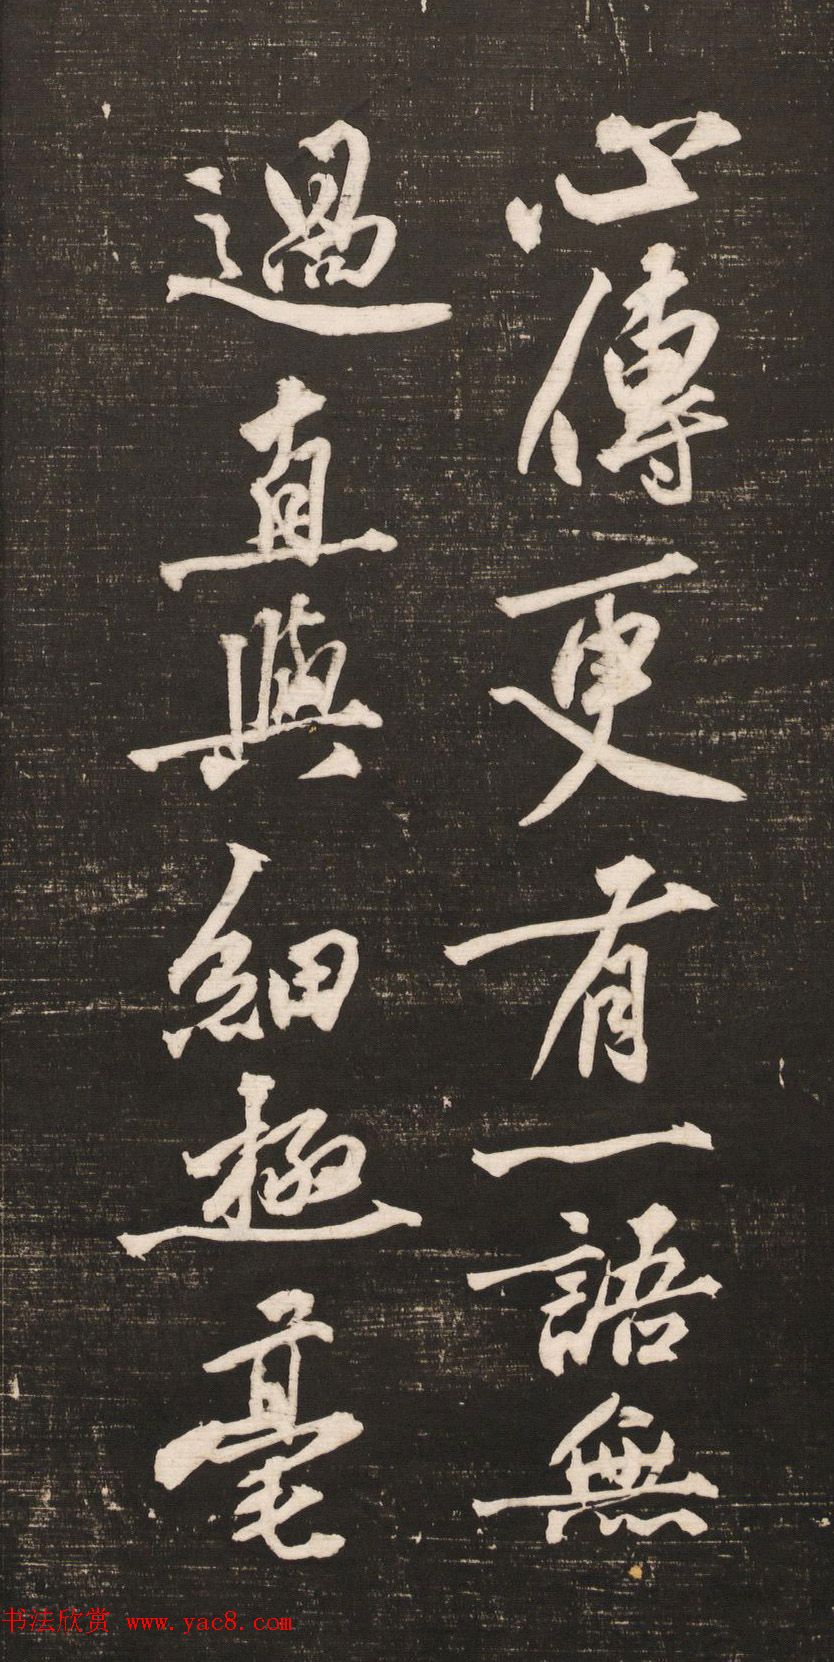 心傳更有一語無
過直與細極毫
书法欣赏 www.yac8.com